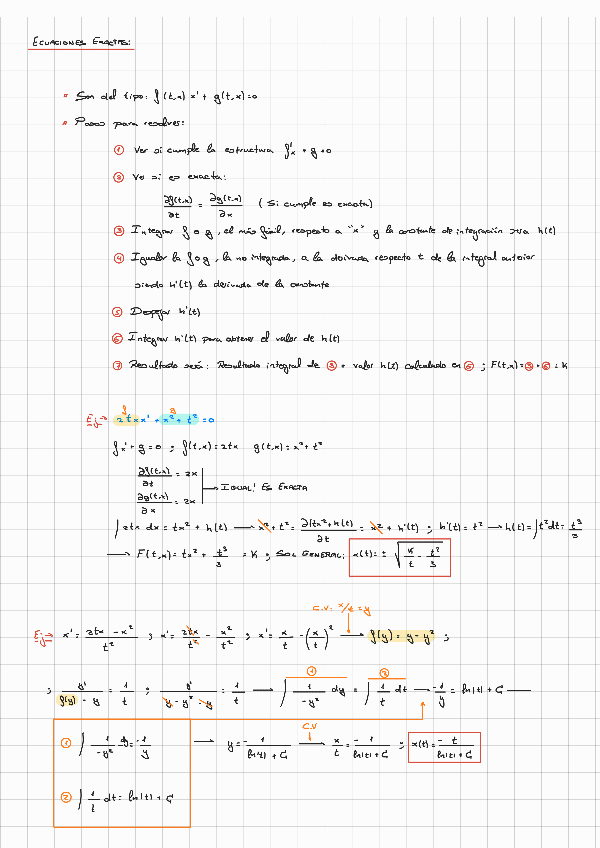 ECUACIONES EXACTAS:
• Son del tipo: f(t,x) x' + g(t,x)=0
• Pasos para resolver:
① Ver si cumple la estructura fx' + g = 0
② Ver si es exacta:
∂f(t,x)/∂t = ∂g(t,x)/∂x (Si cumple es exacta)
③ Integrar f o g, el más fácil, respecto a "x" y la constante de integración será h(t)
④ Igualar la f o g, la no integrada, a la derivada respecto t de la integral anterior
siendo h'(t) la derivada de la constante
⑤ Despejar h'(t)
⑥ Integrar h'(t) para obtener el valor de h(t)
⑦ Resultado será: Resultado integral de ③ + valor h(t) calculado en ⑥ ; F(t,x)=③+⑥=K
f g
Ej→ 2txx' + x² + t² = 0
fx' + g = 0 ; f(t,x) = 2tx g(t,x) = x² + t²
∂f(t,x)/∂t = 2x
→ IGUAL! ES EXACTA
∂g(t,x)/∂x = 2x
∫2tx dx = tx² + h(t) → x² + t² = ∂(tx² + h(t))/∂t = x² + h'(t) ; h'(t) = t² → h(t) = ∫t²dt = t³/3
→ F(t,x) = tx² + t³/3 = K ; SOL GENERAL: x(t) = ± √(K/t - t²/3)
C.V: x/t = y
Ej→ x' = (2tx - x²)/t² ; x' = 2tx/t² - x²/t² ; x' = x/t - (x/t)² → f(y) = y - y² ;
① ②
; y'/(f(y) - y) = 1/t ; y'/(y - y² - y) = 1/t → ∫ 1/-y² dy = ∫ 1/t dt → -1/y = ln|t| + C
① ∫ 1/-y² dy = -1/y → y = -1/(ln|t| + C) C.V → x/t = -1/(ln|t| + C) ; x(t) = -t/(ln|t| + C)
② ∫ 1/t dt = ln|t| + C